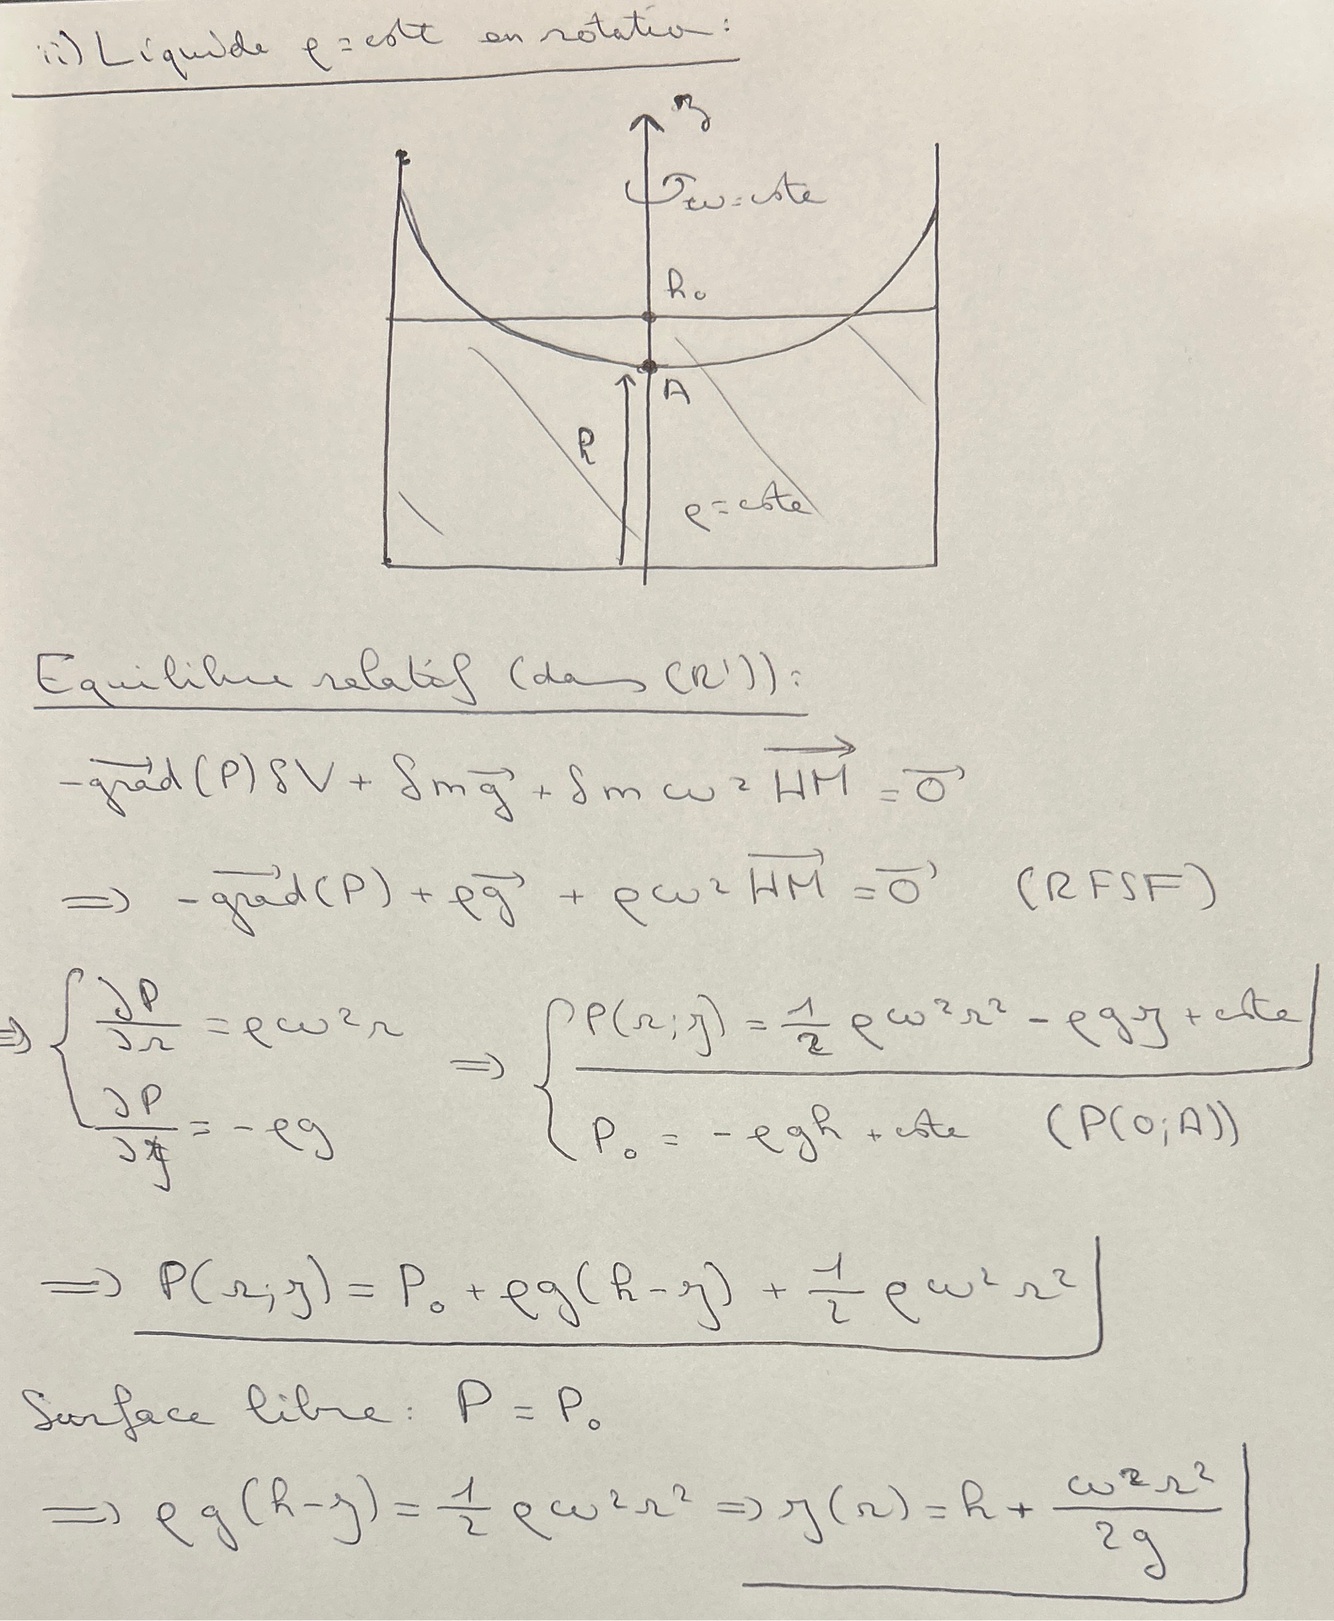 ii) Liquide ρ = cste en rotation :
z
ω = cste
h₀
A
h
ρ = cste
Equilibre relatif (dans (R')) :
-grad⃗(P) δV + δm g⃗ + δm ω² HM⃗ = 0⃗
⇒ -grad⃗(P) + ρg⃗ + ρω² HM⃗ = 0⃗ (RFSF)
⇒ { ∂P/∂r = ρω²r ⇒ { P(r;z) = 1/2 ρω²r² - ρgz + cste
∂P/∂z = -ρg P₀ = -ρgh + cste (P(0;A))
⇒ P(r;z) = P₀ + ρg(h-z) + 1/2 ρω²r²
Surface libre : P = P₀
⇒ ρg(h-z) = 1/2 ρω²r² ⇒ z(r) = h + ω²r²/2g